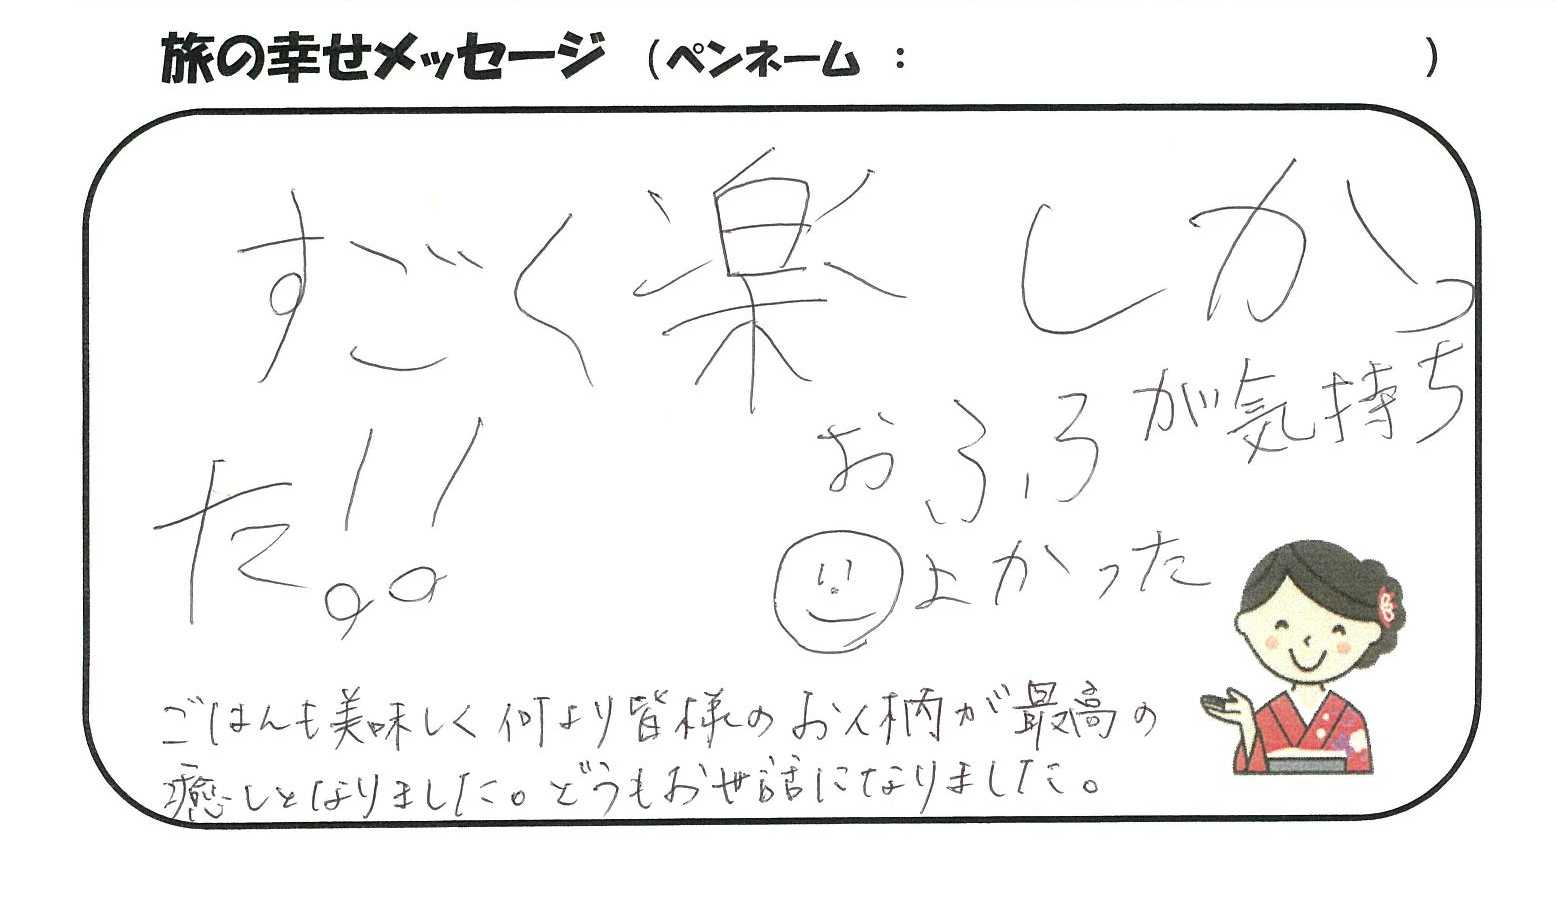 旅の幸せメッセージ (ペンネーム : )
すごく楽しかっ
た!!
おふろが気持ち
よかった
ごはんも美味しく何より皆様のお人柄が最高の
癒しとなりました。どうもお世話になりました。